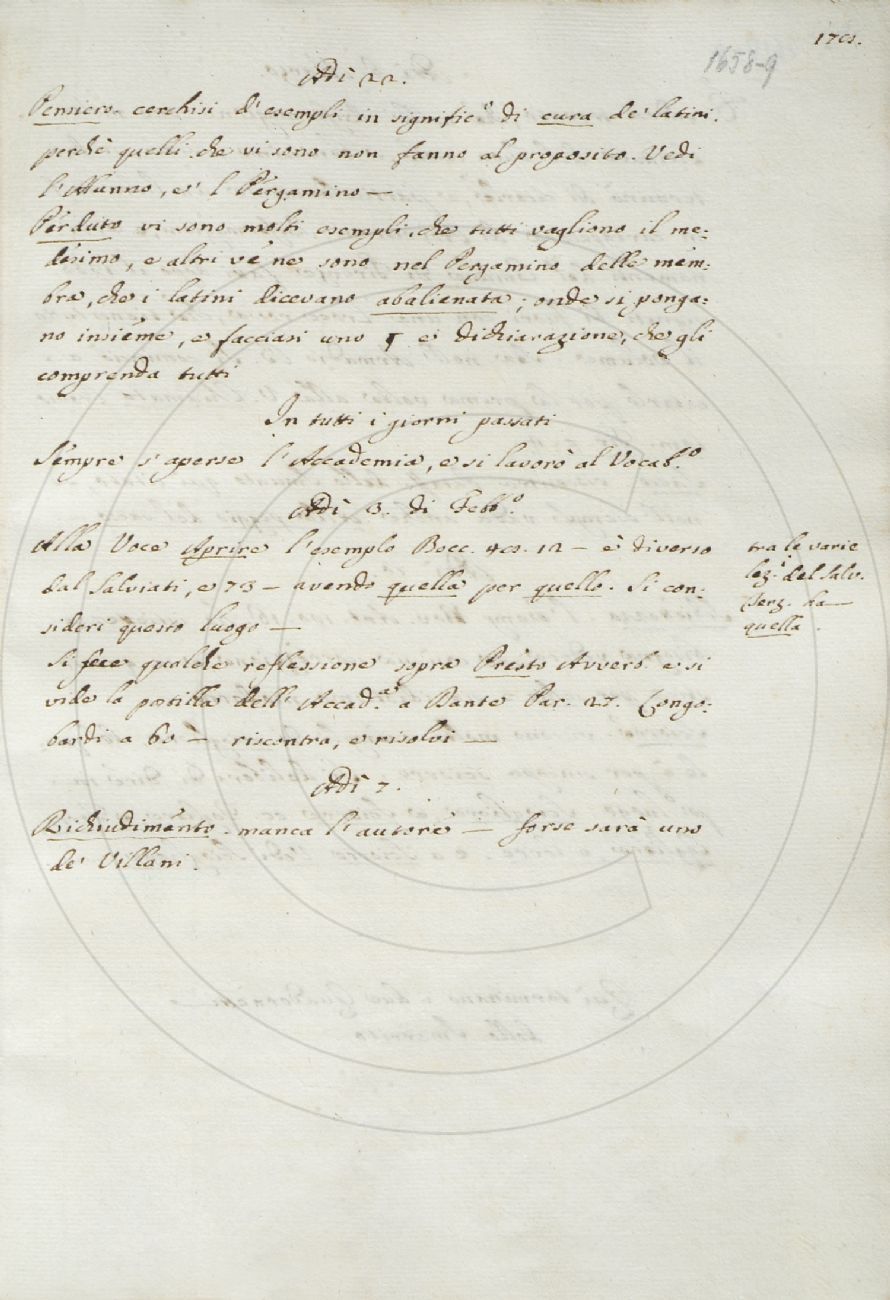 1701.
1658-9
Adì 22.
Pensiero. cerchisi d'esempli in signific.º di cura de' latini.
perchè quelli che vi sono non fanno al proposito. Vedi
l'Alunno, e 'l Pergamino —
Perduto vi sono molti esempli, che tutti vagliono il me:
desimo, e altri ve ne sono nel Pergamino delle mem:
bra, che i latini dicevano abalienata; onde si ponga:
no insieme, e facciasi uno ¶ e dichiarazione, che gli
comprenda tutti
In tutti i giorni passati
Sempre s'aperse l'Accademia, e si lavorò al Vocab.º
Adì 3. di Febb.º
Alla Voce Aprire l'esemplo Bocc. 4 12 — è diverso
dal Salviati, e 73 — avendo quella per quello. Si con:
sideri questo luogo —
Si fece qualche reflessione sopra Presto Avverb. e si
vide la postilla dell'Accad.ª a Dante Par. 27. Longo:
bardi a 60 — riscontra, e risolvi —
Adì 7.
Richiudimento. manca l'autore — forse sarà uno
de' Villani.
tra le varie
lez.ⁱ del Salv.
ha —
quella.